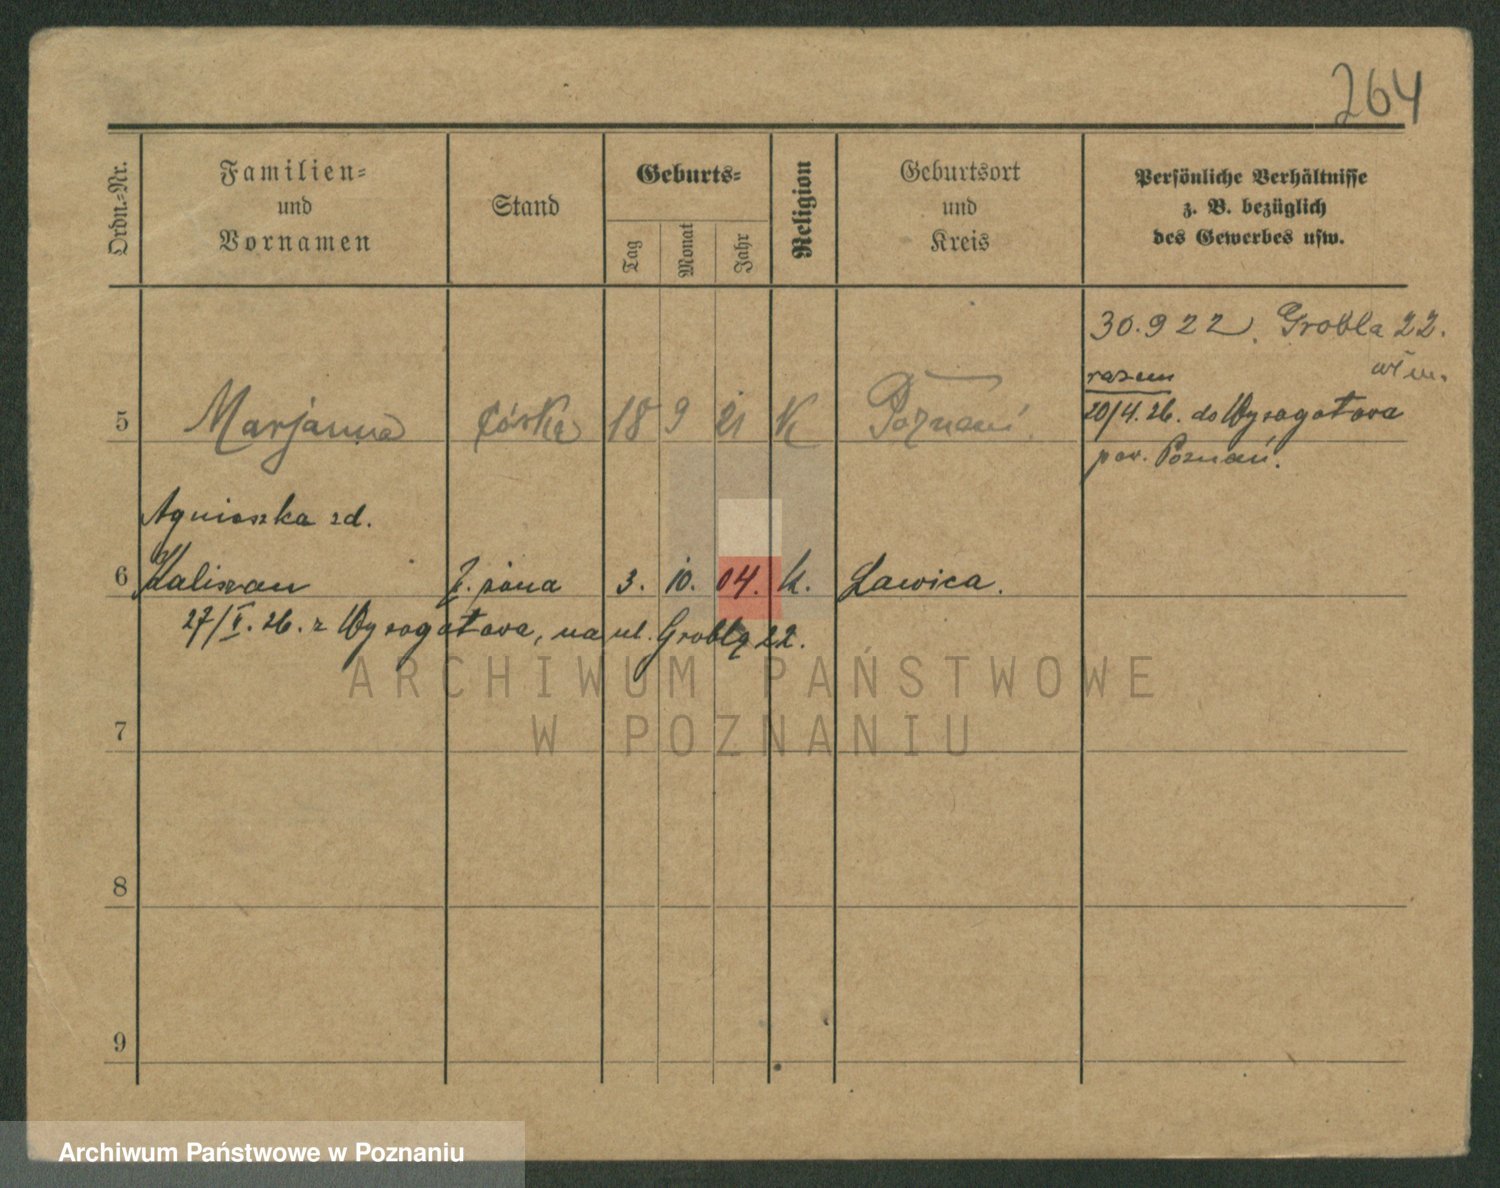 264
Ordn.-Nr.
Familien-
und
Vornamen
Stand
Geburts-
Tag
Monat
Jahr
Religion
Geburtsort
und
Kreis
Persönliche Verhältnisse
z. B. bezüglich
des Gewerbes usw.
30.9 22. Grobla 22.
razem
20/4. 26. do Wysogotowa
pow. Poznań.
5 Marjanna córka 18 9 21 K Poznań.
Agnieszka zd.
6 Kaliszan 3. 10. 04. k. Ławica.
27/V. 26. z Wysogotowa, na ul. Groblą 22.
7
8
9
ARCHIWUM PAŃSTWOWE
W POZNANIU
Archiwum Państwowe w Poznaniu